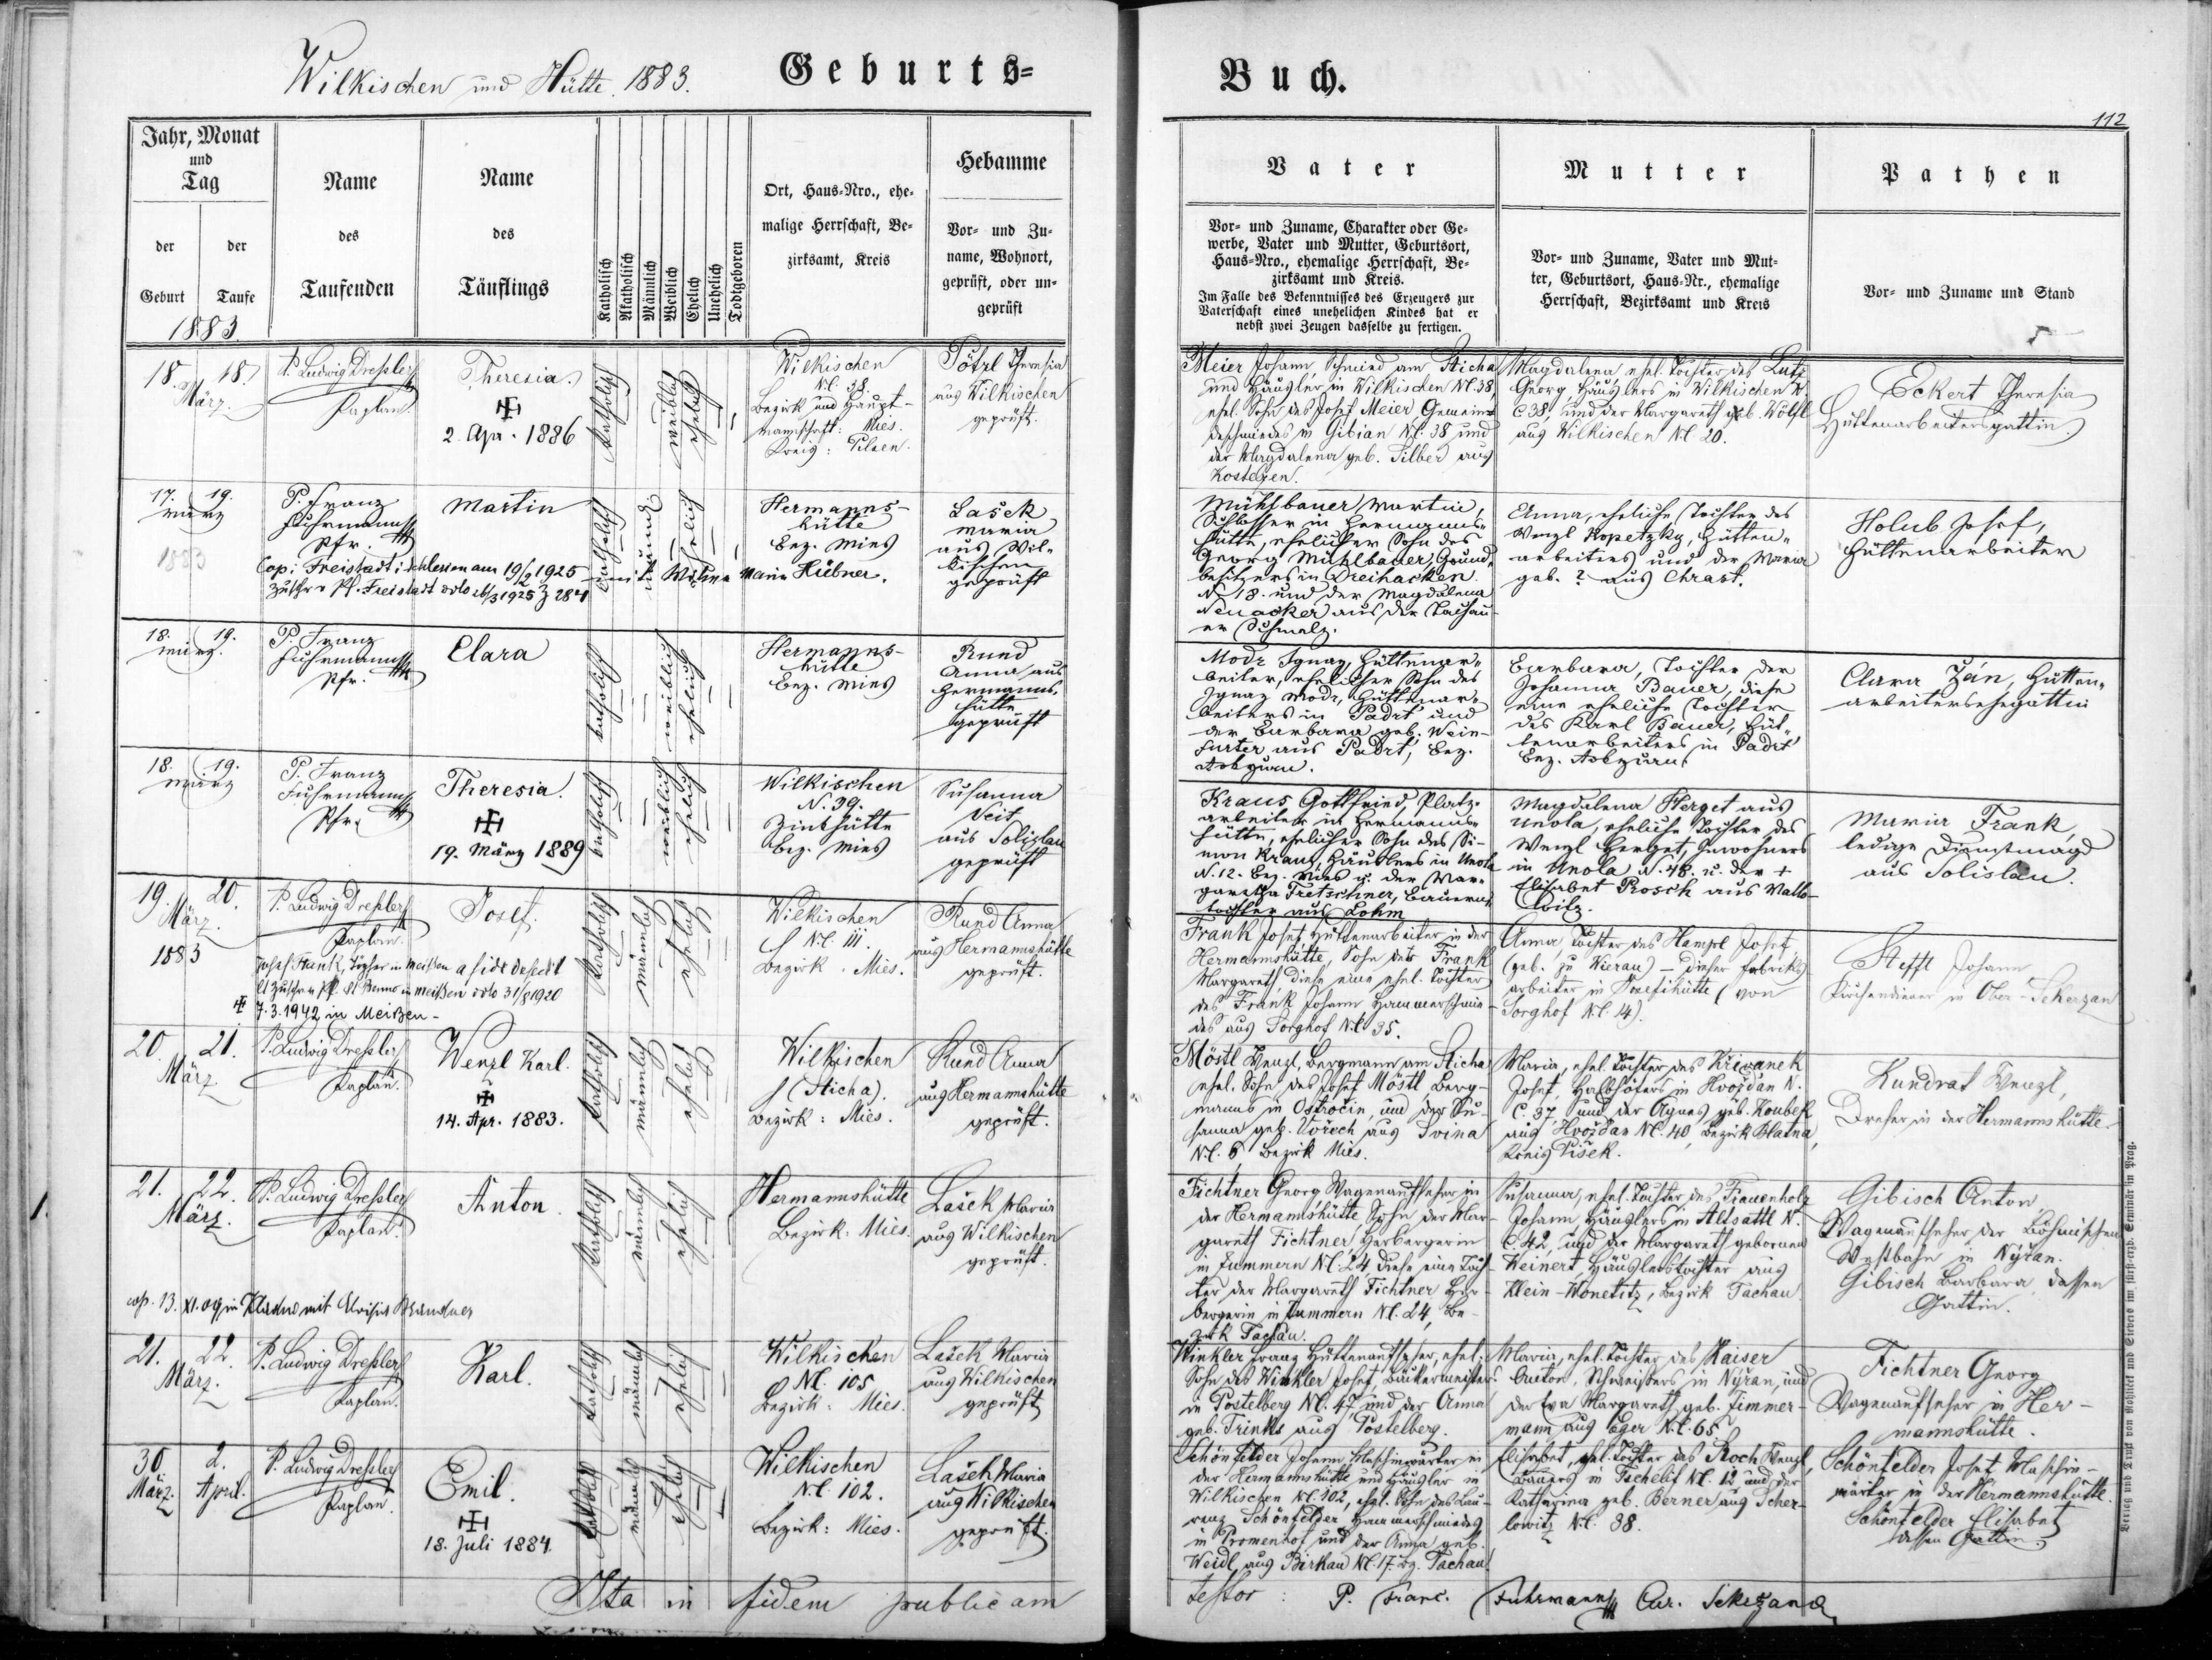 Wilkischen und Hütte 1883.
Geburts=
Buch.
112
Jahr, Monat
und
Tag
der
Geburt
der
Taufe
1883.
Name
des
Taufenden
Name
des
Täuflings
Katholisch
Akatholisch
Männlich
Weiblich
Ehelich
Unehelich
Todtgeboren
Ort, Haus-Nro., ehe-
malige Herrschaft, Be-
zirksamt, Kreis
Hebamme
Vor- und Zu-
name, Wohnort,
geprüft, oder un-
geprüft
Vater
Vor- und Zuname, Charakter oder Ge-
werbe, Vater und Mutter, Geburtsort,
Haus-Nro., ehemalige Herrschaft, Be-
zirksamt und Kreis.
Im Falle des Bekenntnisses des Erzeugers zur
Vaterschaft eines unehelichen Kindes hat er
nebst zwei Zeugen dasselbe zu fertigen.
Mutter
Vor- und Zuname, Vater und Mut-
ter, Geburtsort, Haus-Nr., ehemalige
Herrschaft, Bezirksamt und Kreis
Pathen
Vor- und Zuname und Stand
18. 18.
März.
P. Ludwig Dreßler
Kaplan.
Theresia.
2. Apr. 1886
katholisch
weiblich
ehelich
Wilkischen
N.C. 38.
Bezirk und Haupt-
mannschaft: Mies.
Kreis: Pilsen.
Theresia
aus Wilkischen
geprüft.
Meier Johann, Schmied am Sticha
und Häusler in Wilkischen N.C. 38,
ehel. Sohn des Josef Meier Gemein-
deschmiedes in Gibian N.C. 38 und
der Magdalena geb. Silber aus
Magdalena ehel. Tochter des Lutz
Georg, Häuslers in Wilkischen N.
C. 38, und der Margareth geb. Wölfl
aus Wilkischen N.C. 20.
Eckert Theresia
Hüttenarbeitersgattin.
17. 19.
März
1883
P. Franz
Fuhrmann
Pfr.
Martin
katholisch
männlich
ehelich
Hermanns-
hütte
Bez. Mies
Lašek
Maria
aus Wil-
kischen
geprüft
Cop: Freistadt i. Schlesien am 19/2 1925 mit Marie Hübner.
Zuschr. Pf. Freistadt 1925 Z 284
Mühlbauer Martin,
Schlosser in Hermanns-
hütte, ehelicher Sohn des
Georg Mühlbauer, Grund-
besitzers in Dreihacken
N. 18. und der Magdalena
aus der Tachau-
er Schmelz.
Anna, eheliche Tochter des
Wenzl Kopetzky, Hütten-
arbeiters und der Maria
geb. ? aus Chrast.
Holub Josef,
Hüttenarbeiter
18. 19.
März.
P. Franz
Fuhrmann
Pfr.
Clara
katholisch
weiblich
ehelich
Hermanns-
hütte
Bez. Mies
Rund
Anna aus
Hermanns-
hütte
geprüft
Modr Ignaz, Hüttenar-
beiter, ehelicher Sohn des
Ignaz Modr, Hüttenar-
beiters in Padrt' und
der Barbara geb. Wein-
furter aus Padrt', Bez.
Barbara, Tochter der
Johanna Bauer, diese
eine eheliche Tochter
des Karl Bauer, Hüt-
tenarbeiters in Padrt'
Clara Zán, Hütten-
arbeitersehegattin
18. 19.
März
P. Franz
Fuhrmann
Pfr.
Theresia.
19. März 1889
katholisch
weiblich
ehelich
Wilkischen
N. 39.
Zinkhütte
Bez. Mies
Susanna
Veit
aus Solislau
geprüft
Kraus Gottfried, Platz-
arbeiter in Hermanns-
hütte, ehelicher Sohn des Si-
mon Kraus, Häuslers in Unola
N. 12. Bez. Mies u. der Mar-
garetha Tretschner, Bauers-
tochter aus Lohm
Magdalena Herget aus
Unola, eheliche Tochter des
Wenzl Herget, Inwohners
in Unola N. 48. u. der +
Elisabet Prosch aus
Maria Frank,
ledige Dienstmagd
aus Solislau.
19. 20.
März.
1883
P. Ludwig Dreßler
Kaplan.
Josef.
katholisch
männlich
ehelich
Wilkischen
N.C. 111.
Bezirk. Mies.
Rund Anna
aus Hermannshütte
geprüft.
Josef Frank, in Meißen a fide defecit
Pf. St Benno in Meißen 31/8 1920
7.3.1942 in Meißen -
Frank Josef Hüttenarbeiter in der
Hermannshütte, Sohn der Frank
Margareth, diese eine ehel. Tochter
des Frank Johann Hammerschmie-
des aus Sorghof N.C. 35.
Anna, Tochter des Hampl Josef,
(geb. zu Wierau) - dieser Fabriks-
arbeiter in Josefihütte (von
Sorghof N.C. 14).
Steffl Johann
Kirchendiener in Ober-Sekerzan
20. 21.
März
P. Ludwig Dreßler
Kaplan.
Wenzl Karl.
14. Apr. 1883.
katholisch
männlich
ehelich
Wilkischen
(Sticha).
Bezirk: Mies.
Rund Anna
aus Hermannshütte
geprüft.
Möstl Wenzl, Bergmann am Sticha
ehel. Sohn des Josef Möstl, Berg-
manns in Ostročin, und der Su-
sanna geb. Vořech aus Svina
N.C. 6 Bezirk Mies.
Maria, ehel. Tochter des Křiwanek
Josef, in Hvoždan N.
C. 37 und der Agnes geb. Koubek
aus Hvoždan N.C. 40, Bezirk Blatna,
Kreis Pisek.
Kundrat Wenzl,
Dreher in der Hermannshütte.
21. 22.
März.
P. Ludwig Dreßler
Kaplan.
Anton.
katholisch
männlich
ehelich
Hermannshütte
Bezirk: Mies.
Lašek Maria
aus Wilkischen
geprüft.
cop. 13. XI. 09 in Kladno mit Aloisia Brandner
Fichtner Georg Wagenaufseher in
der Hermannshütte, Sohn der Mar-
gareth Fichtner Herbergerin
in Zummern N.C. 24 diese eine Toch-
ter der Margareth Fichtner Her-
bergerin in Zummern N.C. 24, Be-
zirk Tachau.
Susanna, ehel. Tochter des Frauenholz
Johann, Häuslers in Altsattl N.
C. 42, und der Margareth geborenen
Weinert, Häuslerstochter aus
Klein-Wonetitz, Bezirk Tachau.
Gibisch Anton,
Wagenaufseher der Böhmischen
Westbahn in Nýřan.
Gibisch Barbara, dessen
Gattin.
21. 22.
März.
P. Ludwig Dreßler
Kaplan.
Karl.
katholisch
männlich
ehelich
Wilkischen
N.C. 105
Bezirk: Mies.
Lašek Maria
aus Wilkischen
geprüft
Winkler Franz Hüttenaufseher, ehel.
Sohn des Winkler Josef, Bäckermeisters
in Postelberg N.C. 47 und der Anna
geb. Trinks aus Postelberg.
Maria, ehel. Tochter des Kaiser
Anton, Schweißers in Nýřan, und
der Eva Margareth geb. Zimmer-
mann aus Eger N.C. 65
Fichtner Georg
Wagenaufseher in Her-
mannshütte.
30 2.
März. April.
P. Ludwig Dreßler
Kaplan.
Emil.
18. Juli 1884.
katholisch
männlich
ehelich
Wilkischen
N.C. 102.
Bezirk: Mies.
Lašek Maria
aus Wilkischen
geprüft.
Schönfelder Johann, Maschinwärter in
der Hermannshütte und Häusler in
Wilkischen N.C. 102, ehel. Sohn des Lau-
renz Schönfelder Hammerschmiedes
in Promenhof und der Anna geb.
Weidl aus Birkau N.C. 17. Bz. Tachau
Elisabet, ehel. Tochter des Koch Wenzl,
Bauers in Tschelit N.C. 12 und der
Katharina geb. Berner aus Scher-
lowitz N.C. 38.
Schönfelder Josef Maschin-
wärter in der Hermannshütte.
Schönfelder Elisabet
dessen Gattin.
Ita in fidem publicam
testor: P. Franc. Fuhrmann Cur. Sekerzan